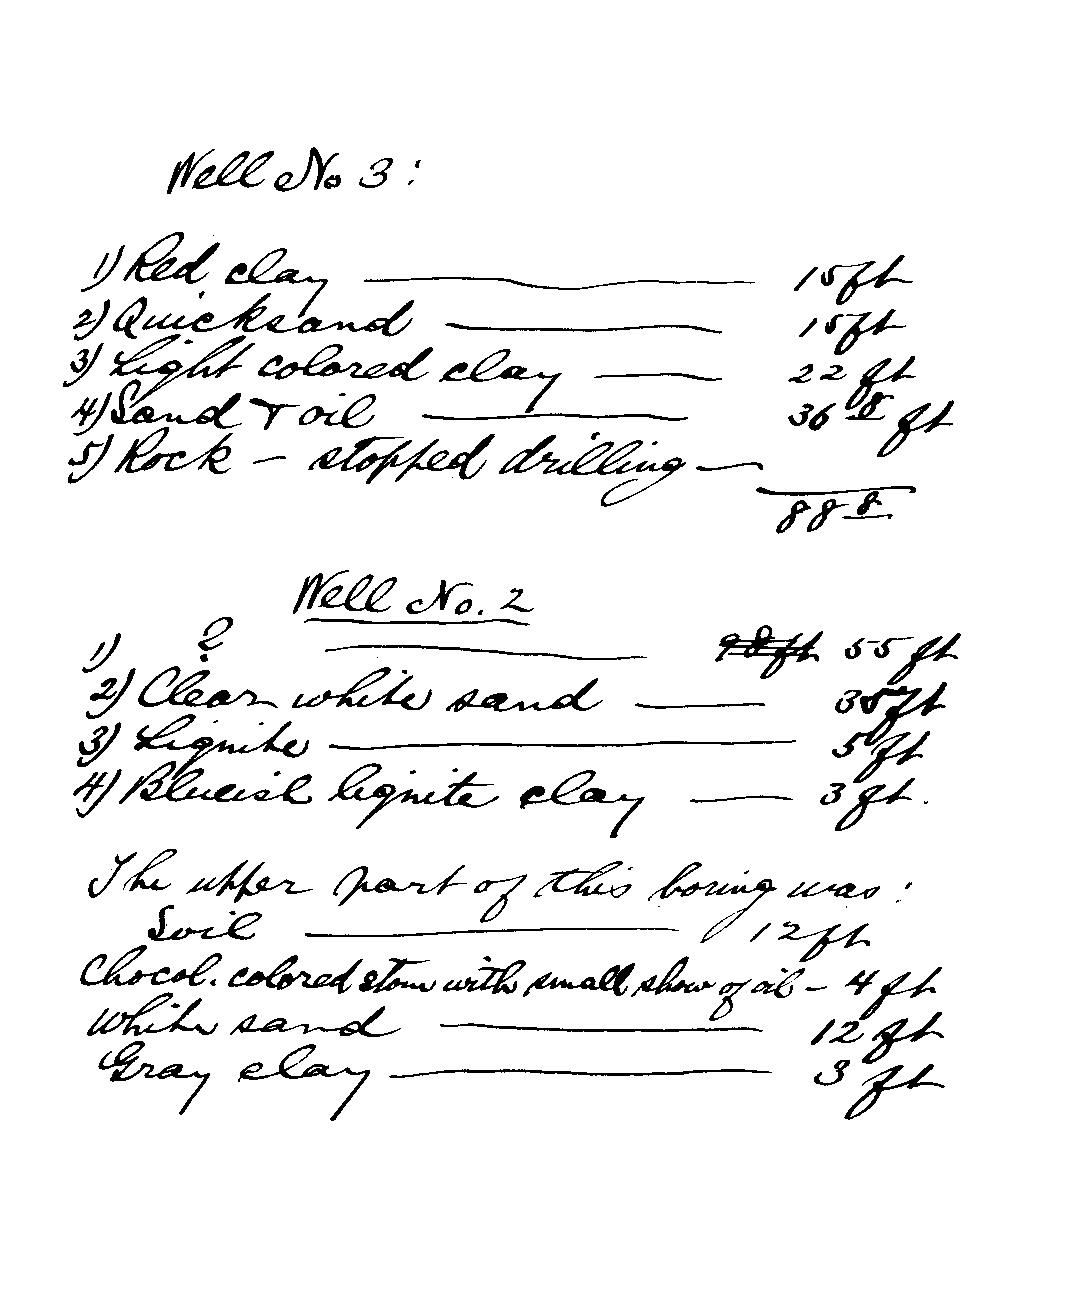 Well No 3:
1) Red clay — 15 ft
2) Quicksand — 15 ft
3) Light colored clay — 22 ft
4) Sand & oil — 36 8 ft
5) Rock — stopped drilling —
88 8
Well No. 2
1) ? — 98 ft 55 ft
2) Clear white sand — 35 ft
3) Lignite — 5 ft
4) Blueish lignite clay — 3 ft.
The upper part of this boring was:
Soil — 12 ft
Chocol. colored stone with small show of oil — 4 ft
White sand — 12 ft
Gray clay — 3 ft